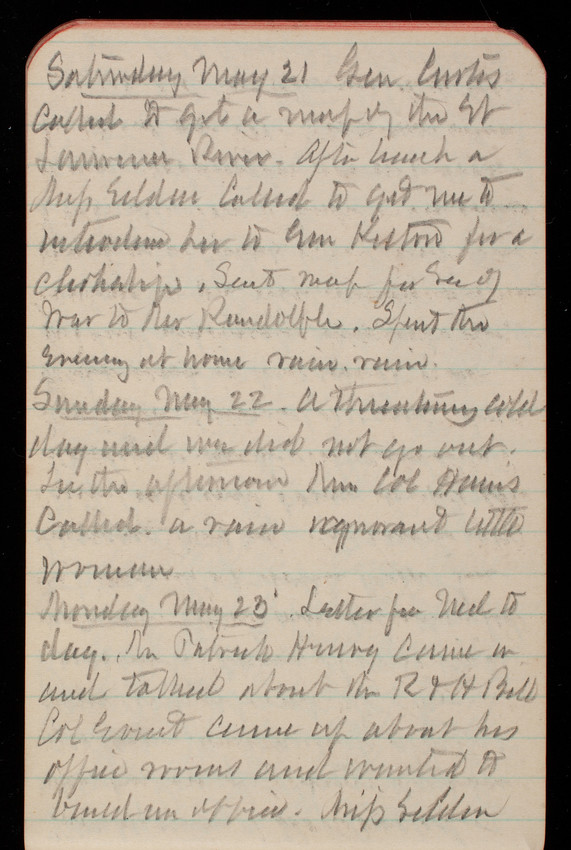 Saturday May 21 Gen. Curtis
Called to get a map of the St
Lawrence River. After lunch a
Miss Selden Called to get me to
introduce her to Gen for a
clerkship. Sent map for Sec of
War to Mrs Randolph. Spent the
Evening at home rain. rain.
Sunday May 22. A threatening cold
day and we did not go out.
In the afternoon Mrs Col Harris
Called. a vain ignorant little
woman
Monday May 23. Letter from Ned to
day. Mr Patrick Henry came in
and talked about the R & H Bill
Col came up about his
office rooms and wanted to
build an office. Miss Selden